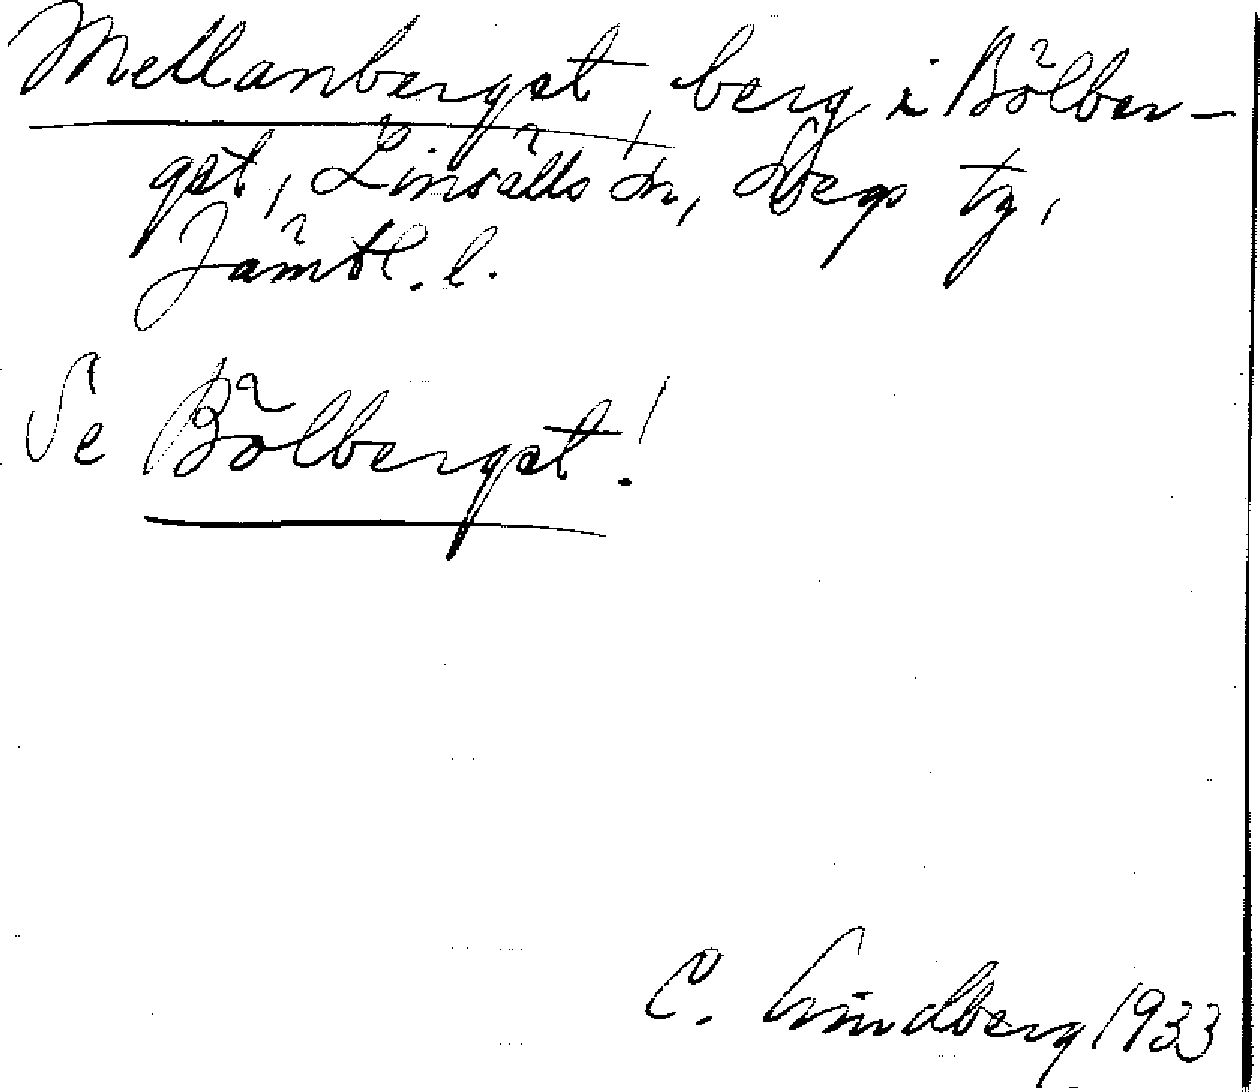 Mellanberget, berg i Bölber-
get, Linsälls sn, Svegs tg,
Jämtl. l.
Se Bölberget!
C. Lindberg 1933